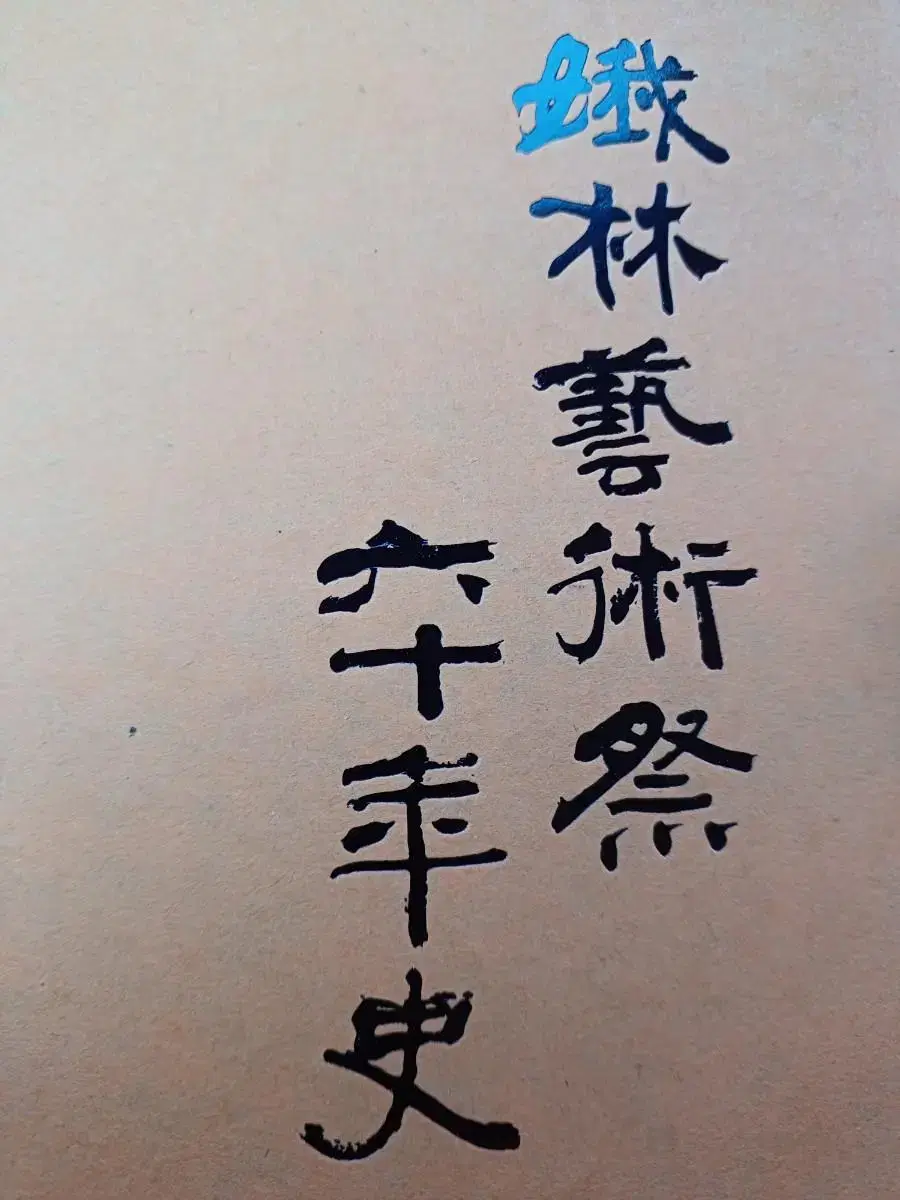 娥林藝術祭
六十年史